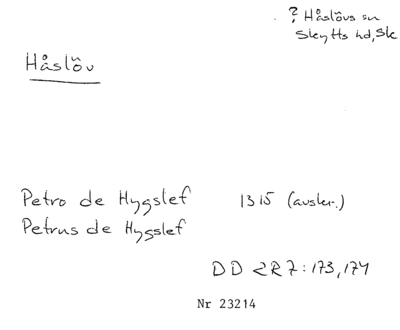 ? Håslövs sn
Skytts hd, Sk
Håslöv
Petro de Hygslef 1315 (avskr.)
Petrus de Hygslef
DD 2R7:173,174
Nr 23214